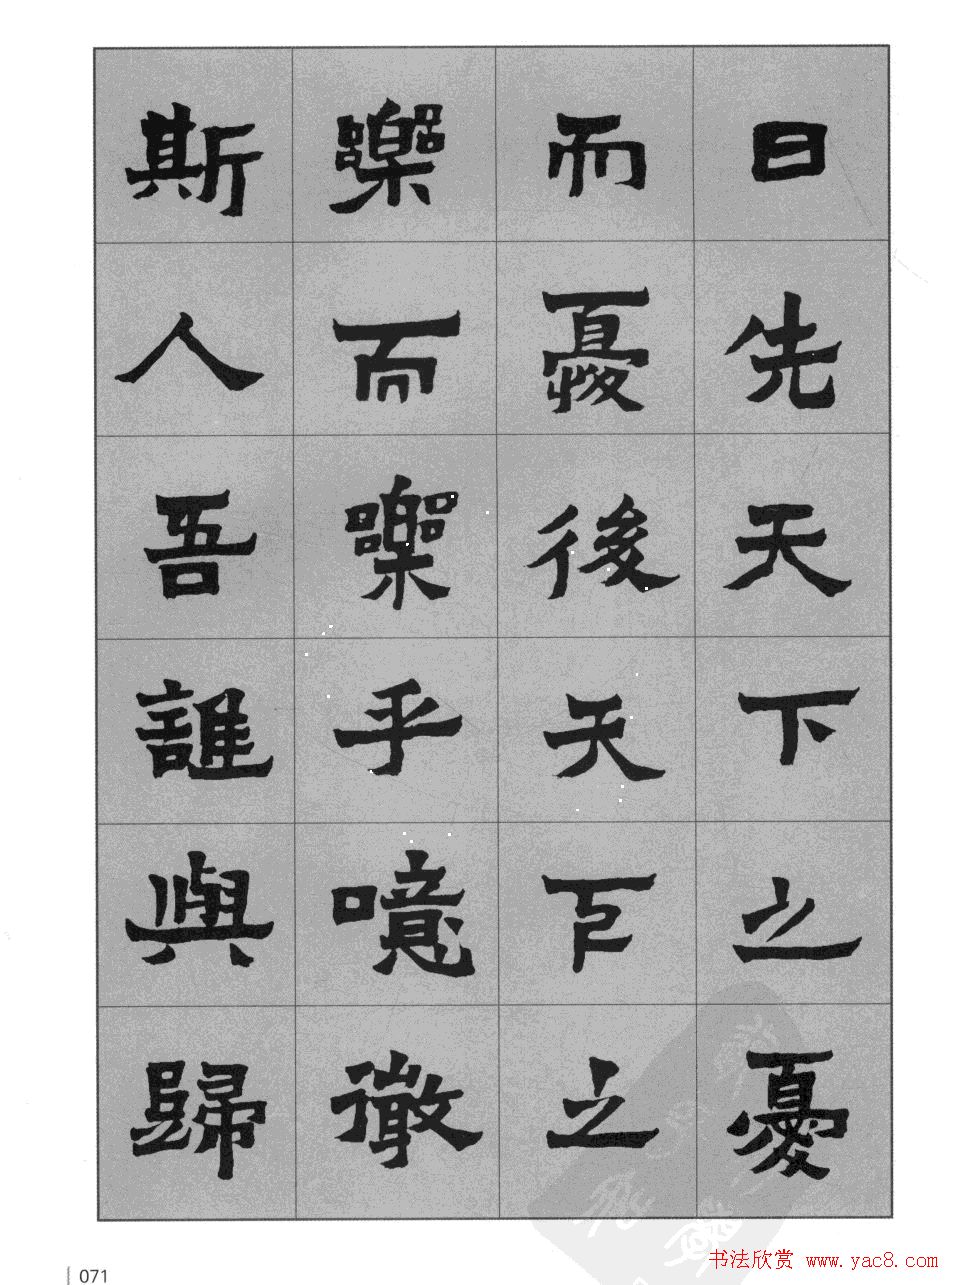 曰先天下之憂
而憂後天下之
樂而樂乎噫微
斯人吾誰與歸
071
书法欣赏 www.yac8.com